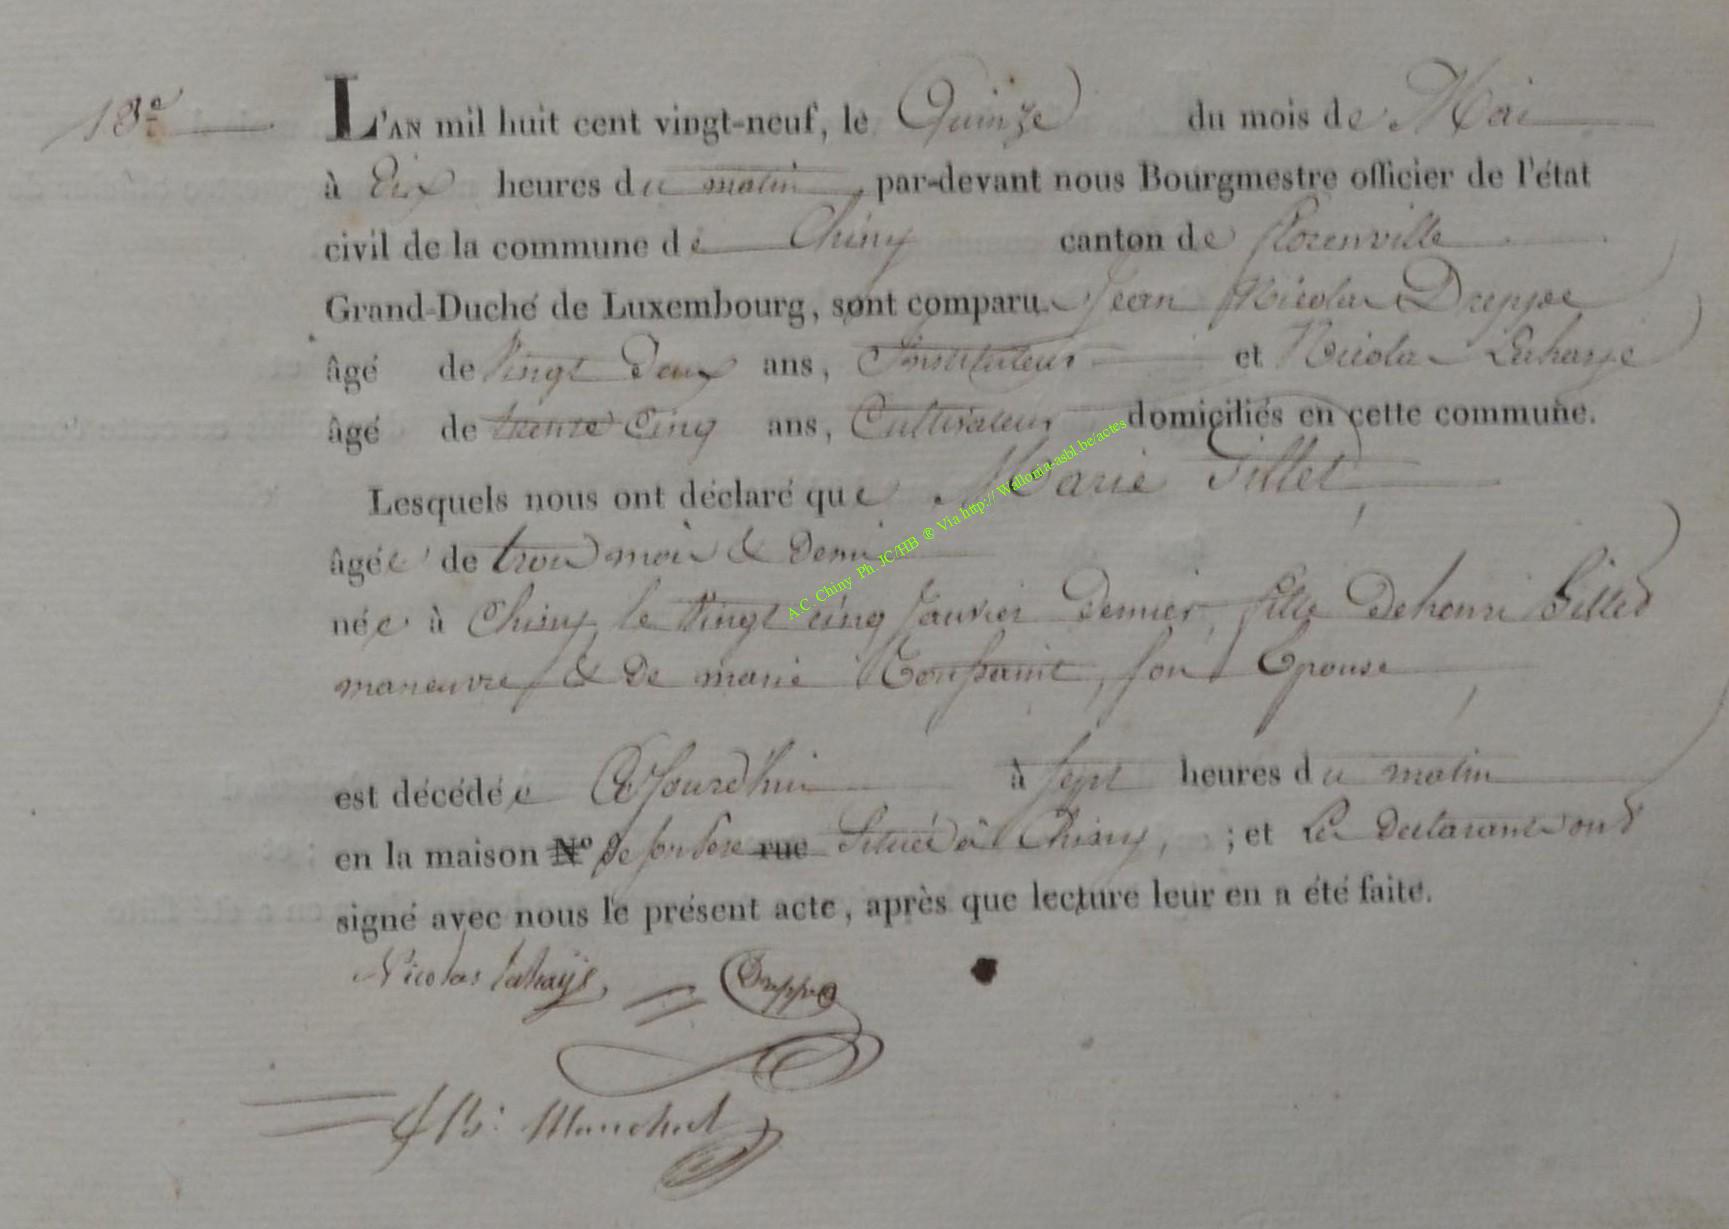 18e L'AN mil huit cent vingt-neuf, le Quinze du mois de Mai
à Dix heures du matin, par-devant nous Bourgmestre officier de l'état
civil de la commune de Chiny canton de florenville
Grand-Duché de Luxembourg, sont comparu Jean Nicolas Dreppe
âgé de Vingt Deux ans, Instituteur et Nicolas Lahaye
âgé de trente Cinq ans, Cultivateur domiciliés en cette commune.
Lesquels nous ont déclaré que Marie Gillet,
âgée de trois mois & Demi
née à Chiny le Vingt cinq Janvier Dernier, fille De henri Gillet
manœuvre & De marie Toussaint, son Epouse,
est décédée Ajourdhui à sept heures du matin
en la maison N° De son Pere rue Située à Chiny, ; et Les Declarants ont
signé avec nous le présent acte, après que lecture leur en a été faite.
Nicolas Lahaye, Dreppe
Manchel
A.C. Chiny Ph. JC/HB ® Via http:// Wallonia-asbl.be/actes